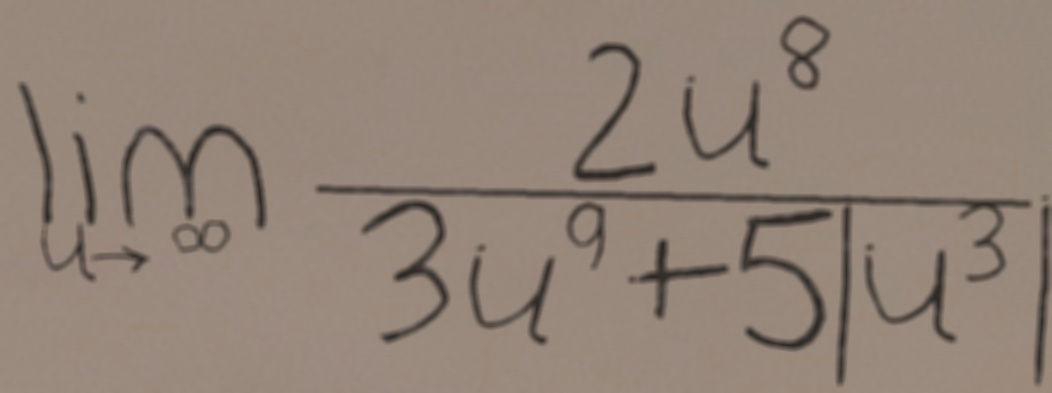 \lim_{u \to \infty} \frac{2u^8}{3u^9+5|u^3|}